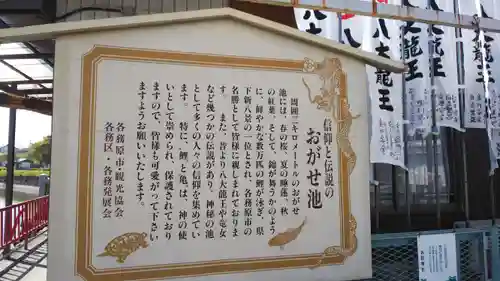 信仰と伝説の
おがせ池
周囲二キロメートルのおがせ
池には、春の桜、夏の睡蓮、秋
の紅葉、そして、錦が舞うかのよう
に、鮮やかな数万匹の鯉が泳ぎ、県
下新八景の一位とされ、各務原市の
名勝として皆様に親しまれておりま
す。また、昔より八大龍王や竜女
など幾つかの伝説があり、神秘の池
として多くの人々の信仰を集めてい
ます。特に、鯉と亀は、神の使
いとして崇められ、保護されており
ますので、皆様も可愛がって下さい
ますようお願いいたします。
各務原市観光協会
各務区・各務発展会
八大龍王
八大龍王
八大龍王
大龍王
龍王